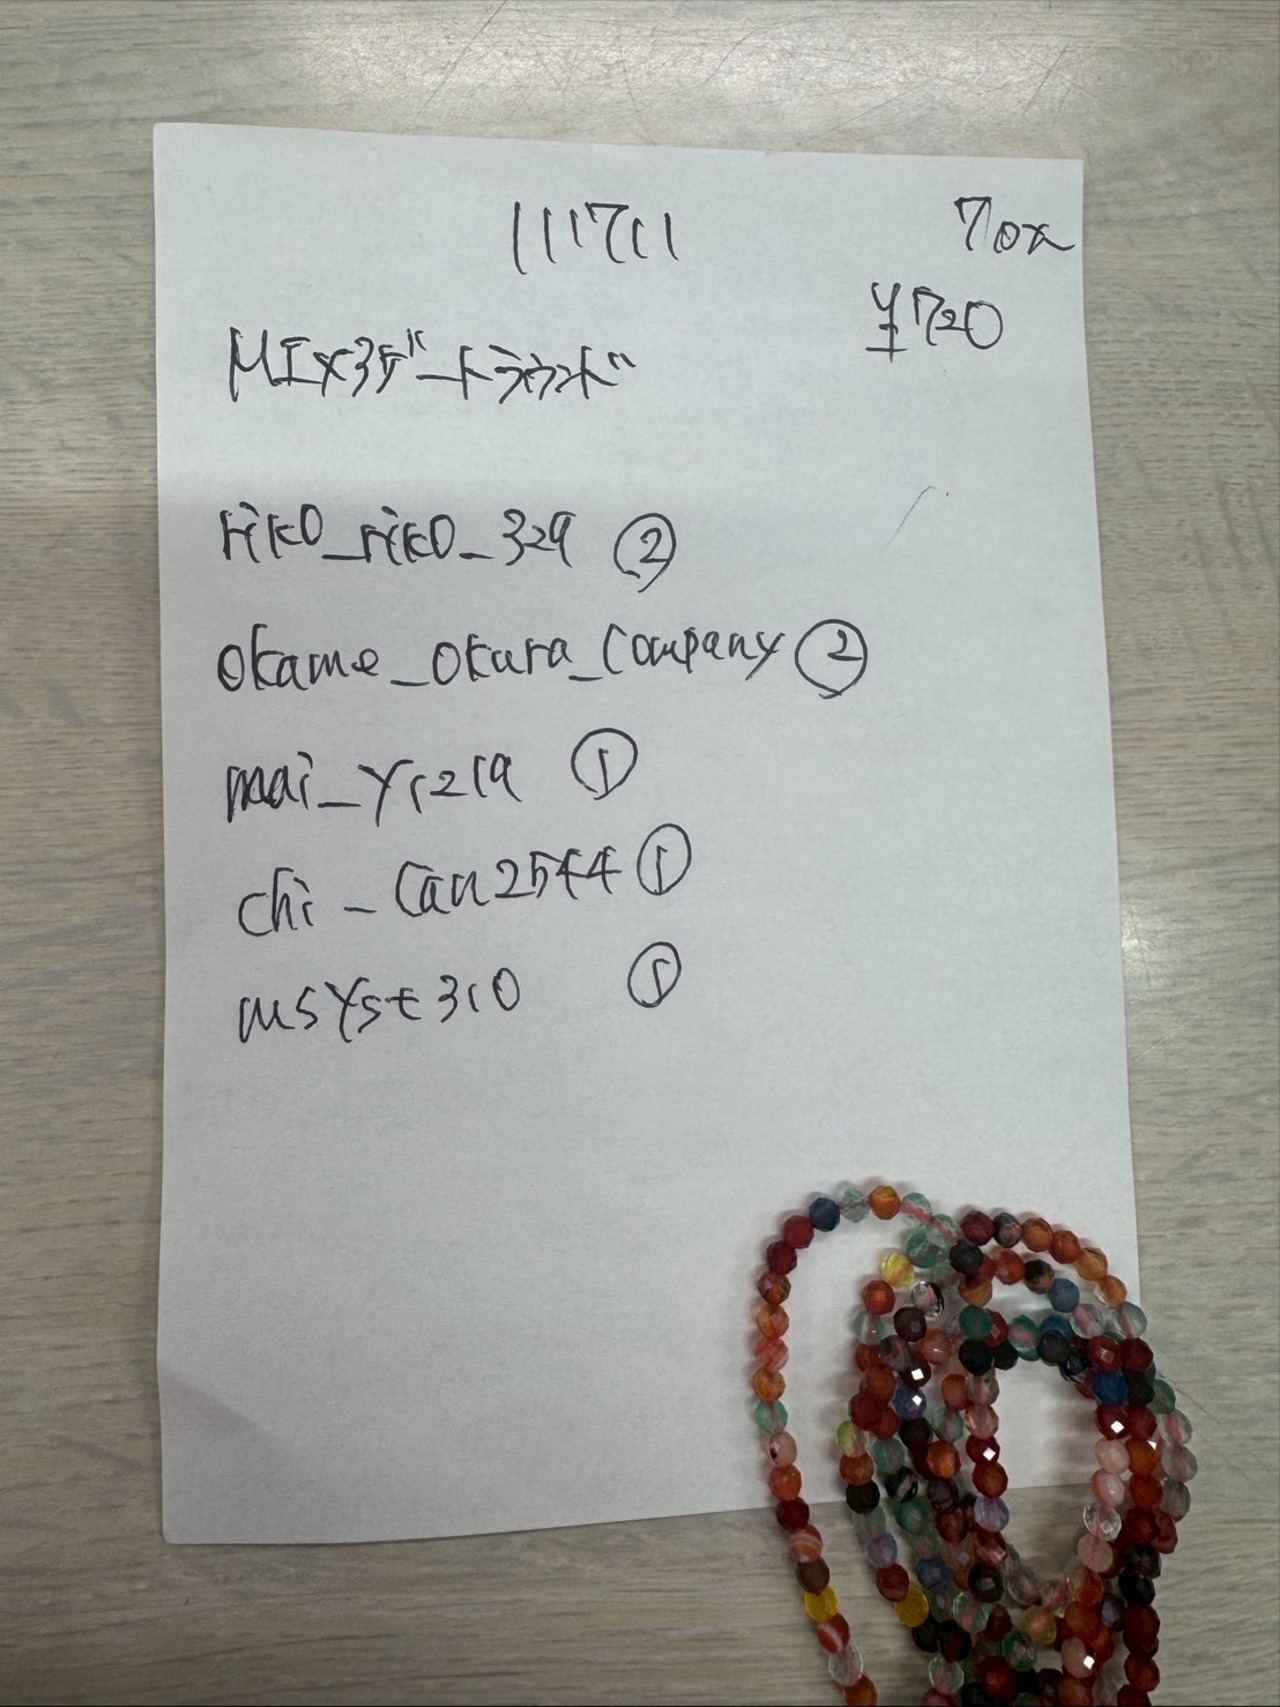 111711
70x
¥720
MIX37ビートラウンド
riko_riko_329 ②
okame_okura_company ②
mai_yr219 ①
chi_can2544 ①
msyst310 ①